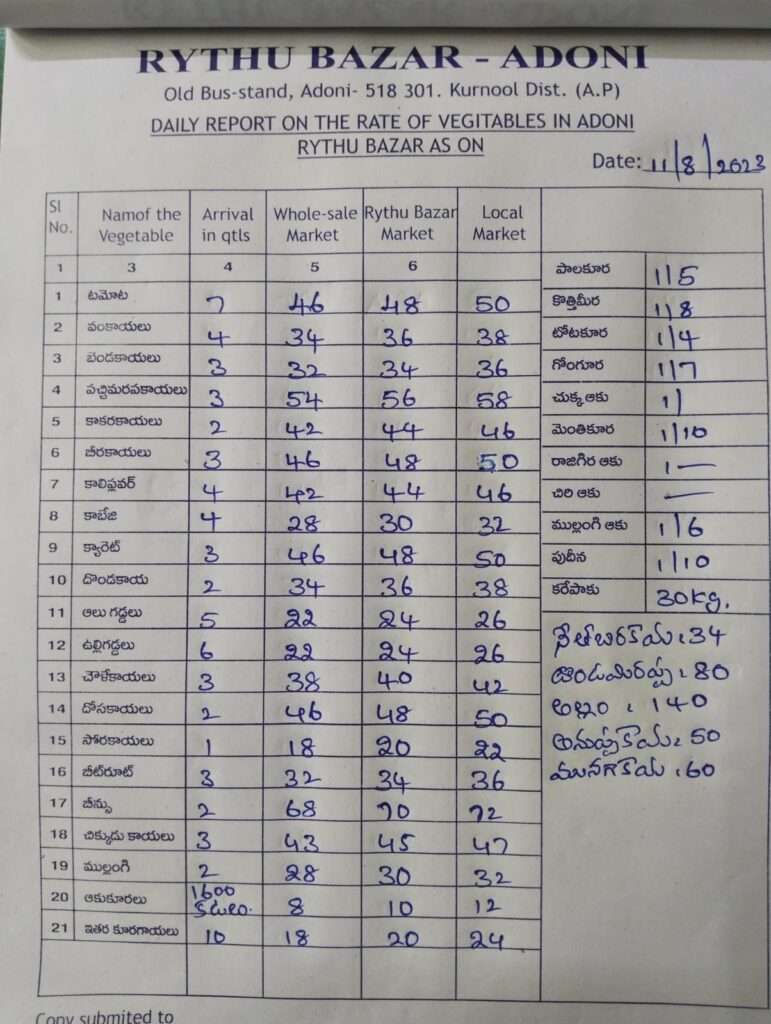 RYTHU BAZAR - ADONI
Old Bus-stand, Adoni- 518 301. Kurnool Dist. (A.P)
DAILY REPORT ON THE RATE OF VEGITABLES IN ADONI
RYTHU BAZAR AS ON
Date: 11/8/2023
Sl No. Namof the Vegetable Arrival in qtls Whole-sale Market Rythu Bazar Market Local Market
1 3 4 5 6
1 టమోట 7 46 48 50
2 వంకాయలు 4 34 36 38
3 బెండకాయలు 3 32 34 36
4 పచ్చిమిరపకాయలు 3 54 56 58
5 కాకరకాయలు 2 42 44 46
6 బీరకాయలు 3 46 48 50
7 కాలిఫ్లవర్ 4 42 44 46
8 కాబేజి 4 28 30 32
9 క్యారెట్ 3 46 48 50
10 దొండకాయ 2 34 36 38
11 ఆలు గడ్డలు 5 22 24 26
12 ఉల్లిగడ్డలు 6 22 24 26
13 చౌళేకాయలు 3 38 40 42
14 దోసకాయలు 2 46 48 50
15 సోరకాయలు 1 18 20 22
16 బీట్‌రూట్ 3 32 34 36
17 బీన్సు 2 68 70 72
18 చిక్కుడు కాయలు 3 43 45 47
19 ముల్లంగి 2 28 30 32
20 ఆకుకూరలు 1600 కటలు. 8 10 12
21 ఇతర కూరగాయలు 10 18 20 24
పాలకూర 1/5
కొత్తిమీర 1/8
టోటకూర 1/4
గోంగూర 1/7
చుక్క ఆకు 1/
మెంతికూర 1/10
రాజగిర ఆకు 1 —
చిరి ఆకు —
ముల్లంగి ఆకు 1/6
పుదీన 1/10
కరేపాకు 30kg.
నేతిబీరకాయ : 34
: 80
అల్లం : 140
అనుపకాయ : 50
మునగకాయ : 60
Copy submited to